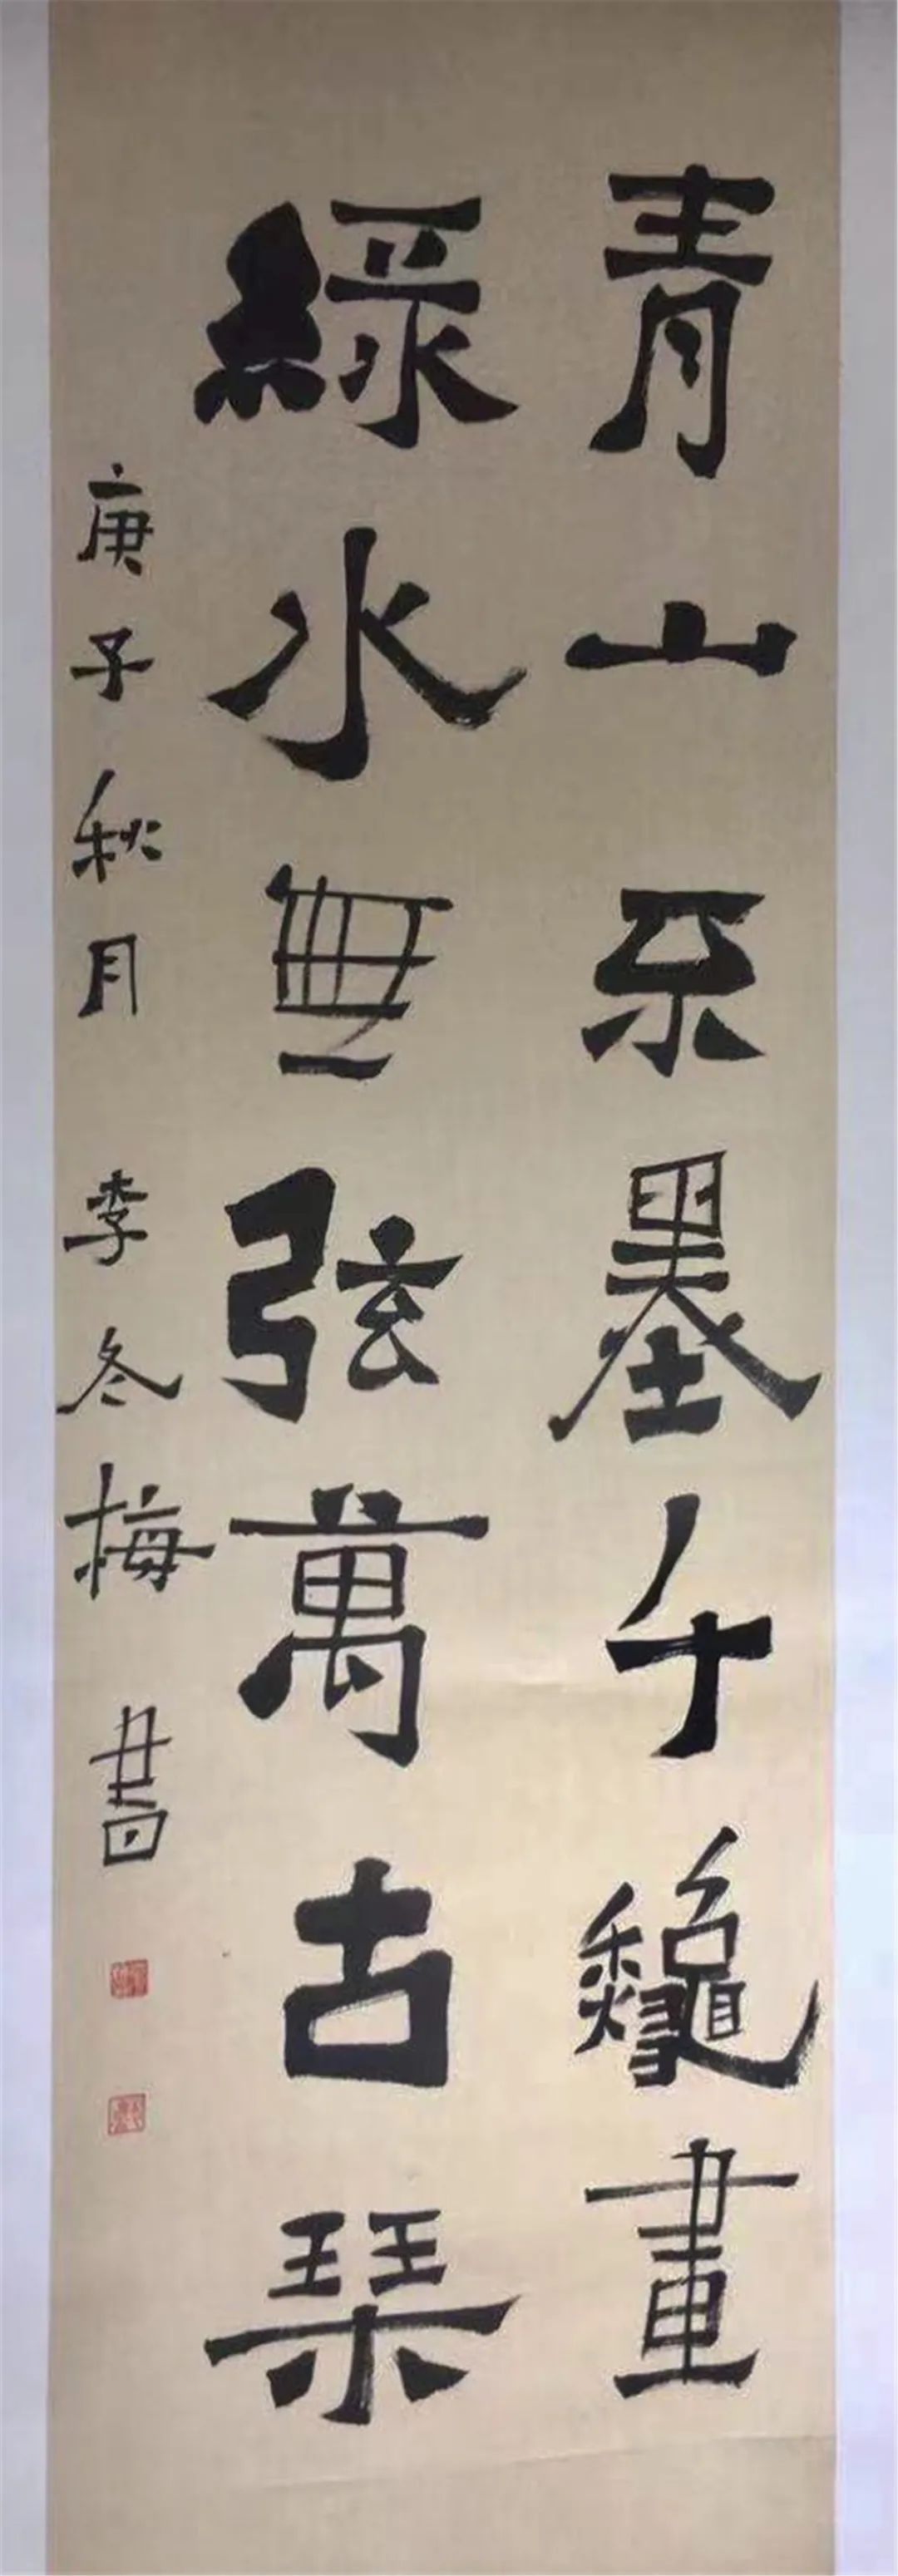 青山不墨千龝畫
綠水無弦萬古琹
庚子秋月 李冬梅 書